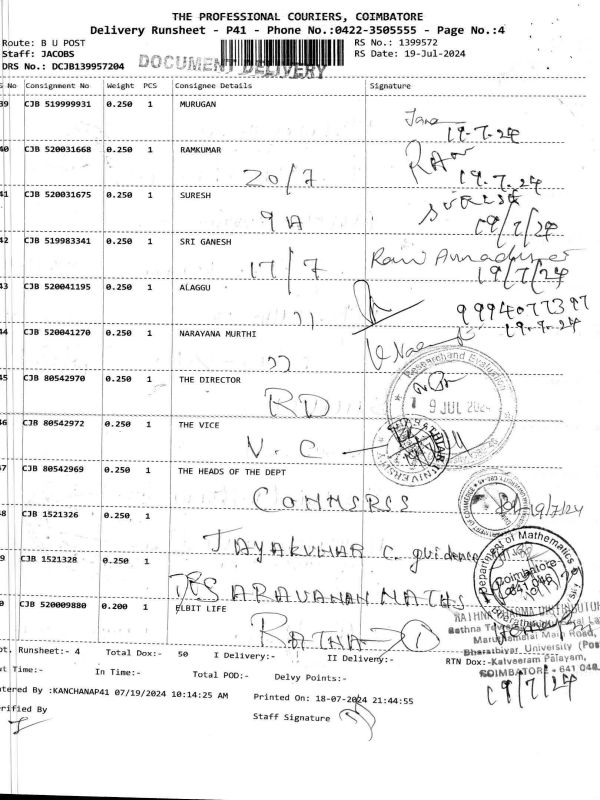 THE PROFESSIONAL COURIERS, COIMBATORE
Delivery Runsheet - P41 - Phone No.:0422-3505555 - Page No.:4
Route: B U POST RS No.: 1399572
Staff: JACOBS RS Date: 19-Jul-2024
DRS No.: DCJB139957204 DOCUMENT DELIVERY
S No Consignment No Weight PCS Consignee Details Signature
39 CJB 519999931 0.250 1 MURUGAN
19.7.24
40 CJB 520031668 0.250 1 RAMKUMAR
20/7 19.7.24
41 CJB 520031675 0.250 1 SURESH
9A 19/7/24
42 CJB 519983341 0.250 1 SRI GANESH
17/7 19/7/24
43 CJB 520041195 0.250 1 ALAGGU
9994077397
19.7.24
44 CJB 520041270 0.250 1 NARAYANA MURTHI
45 CJB 80542970 0.250 1 THE DIRECTOR
RD
Research and Evaluation
19 JUL 2024
46 CJB 80542972 0.250 1 THE VICE
V.C
47 CJB 80542969 0.250 1 THE HEADS OF THE DEPT
COMMERCE
19/7/24
48 CJB 1521326 0.250 1
JAYAKUMAR C. guidence
Department of Mathematics
Coimbatore
641 046
49 CJB 1521328 0.250 1
SARAVANAN MATHS
50 CJB 520009880 0.200 1 ELBIT LIFE
RATHNA
RATHNA PHARMA DISTRIBUTOR
Maruthamalai Main Road,
Bharathiyar University (Post
Kalveeram Palayam,
COIMBATORE - 641 046.
19/7/24
Tot. Runsheet:- 4 Total Dox:- 50 I Delivery:- II Delivery:- RTN Dox:-
Out Time:- In Time:- Total POD:- Delvy Points:-
Entered By :KANCHANAP41 07/19/2024 10:14:25 AM Printed On: 18-07-2024 21:44:55
Verified By Staff Signature